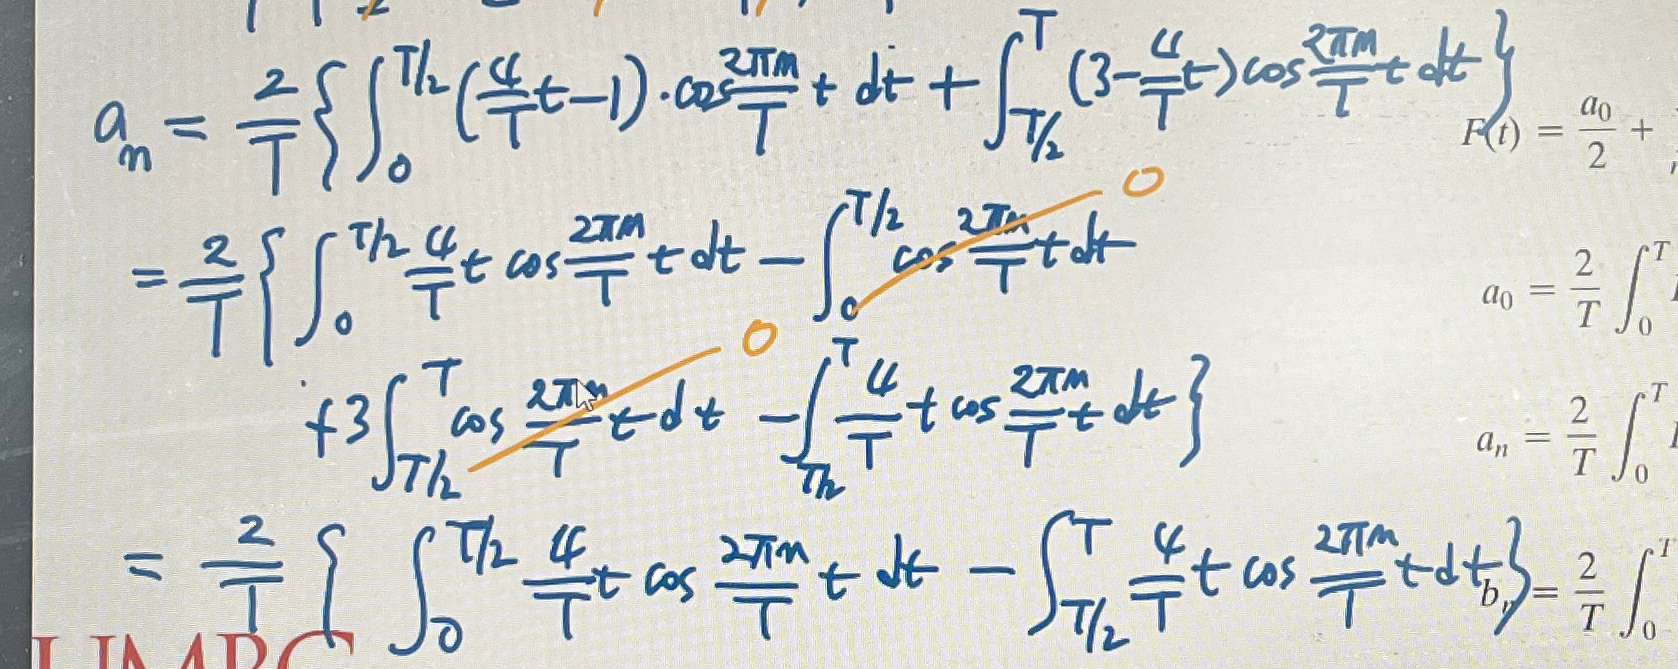 aₙ = 2/T { ∫₀^{T/2} (4/T t − 1) · cos 2πn/T t dt + ∫_{T/2}^{T} (3 − 4/T t) cos 2πn/T t dt }
F(t) = a₀/2 +
= 2/T { ∫₀^{T/2} 4/T t cos 2πn/T t dt − ∫₀^{T/2} cos 2πn/T t dt 0
a₀ = 2/T ∫₀^T
+ 3 ∫_{T/2}^{T} cos 2πn/T t dt 0 − ∫_{T/2}^{T} 4/T t cos 2πn/T t dt }
aₙ = 2/T ∫₀^T
= 2/T { ∫₀^{T/2} 4/T t cos 2πn/T t dt − ∫_{T/2}^{T} 4/T t cos 2πn/T t dt }
bₙ = 2/T ∫₀^T
UMBC